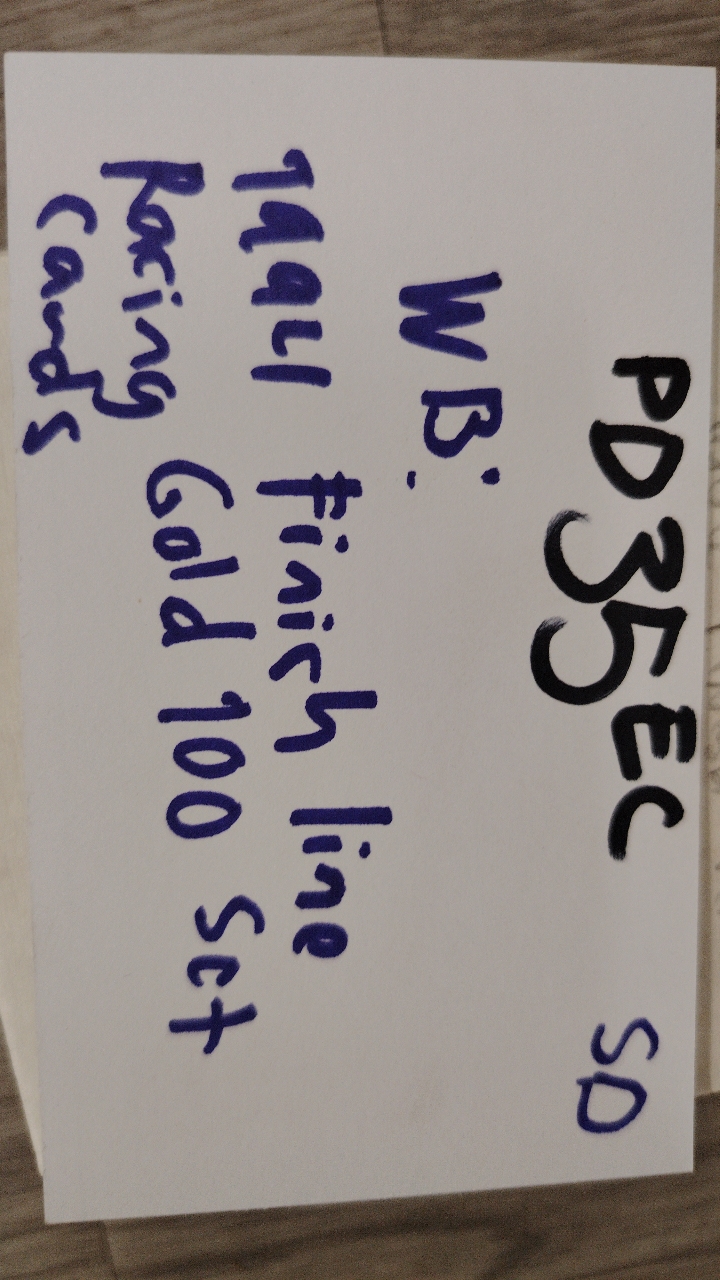 PD35EC SD
WB:
1994 Finish line
Racing Gold 100 Set
Cards